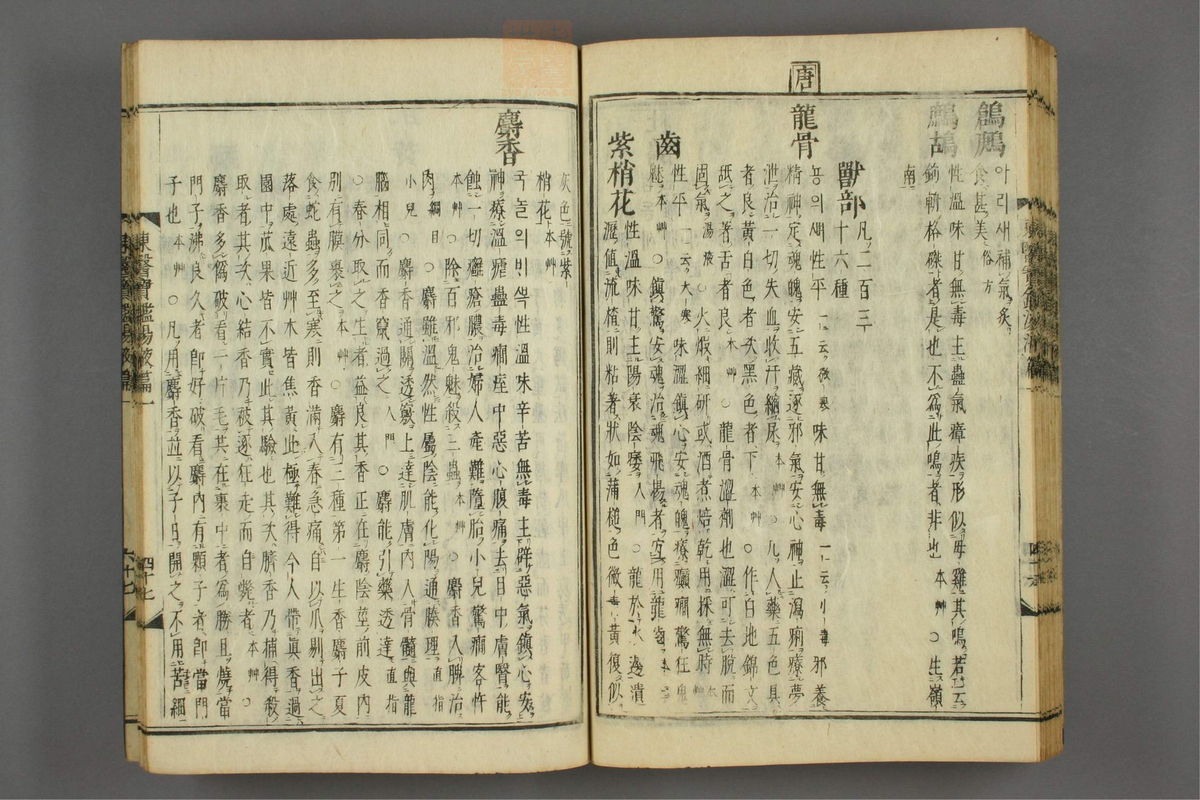 唐
아리새補氣炙
食甚美俗方
性溫味甘無毒主蠱氣瘴疾形似母雞其鳴若云
鉤輈格磔者是也不爲此鳴者非也本艸○生嶺
南
獸部凡二百三
十六種
龍骨
性平一云微寒味甘無毒一云小毒邪養
精神定魂魄安五藏逐邪氣安心神止瀉痢療夢
泄治一切失血收汗縮尿本艸○凡入藥五色具
者良黃白色者次黑色者下本艸○作白地錦文
舐之著舌者良本艸○龍骨澁劑也澁可去脫而
固氣湯液○火煆細硏或酒煮焙乾用採無時本艸
齒性平一云大寒味澁鎭心安魂魄療癲癎驚狂鬼
魅本艸○鎭驚安魂治魂飛揚者宜用龍齒本艸
紫梢花性溫味甘主陽衰陰痿入門○龍於水邊潰
瀝値流槎則粘著狀如蒲槌色微靑黃復似
灰色號紫
梢花本艸
麝香국놀의비쇽性溫味辛苦無毒主辟惡氣鎭心安
神療溫瘧蠱毒癎痓中惡心腹痛去目中膚瞖能
蝕一切癰瘡膿治婦人產難墮胎小兒驚癎客忤
本艸○除百邪鬼魅殺三蟲本艸○麝香入脾治
肉綱目○麝雖溫然性屬陰能化陽通腠理直指
小兒○麝香通關透竅上達肌膚內入骨髓與龍
腦相同而香竄過之入門○麝能引藥透達直指
○春分取之生者益良其香正在麝陰莖前皮內
別有膜裹之本艸○麝有三種第一生香麝子夏
食蛇蟲多至寒則香滿入春急痛自以爪剔出之
落處遠近艸木皆焦黃此極難得今人帶眞香過
園中苽果皆不實此其驗也其次臍香乃捕得殺
取者其次心結香乃被逐狂走而自斃者本艸○
麝香多僞破看一片毛共在裹中者爲勝且燒當
門子沸良久者卽好破看麝內有顆子者卽當門
子也本艸○凡用麝香並以子日開之不用苦細
東醫寶鑑湯液篇一
四十七